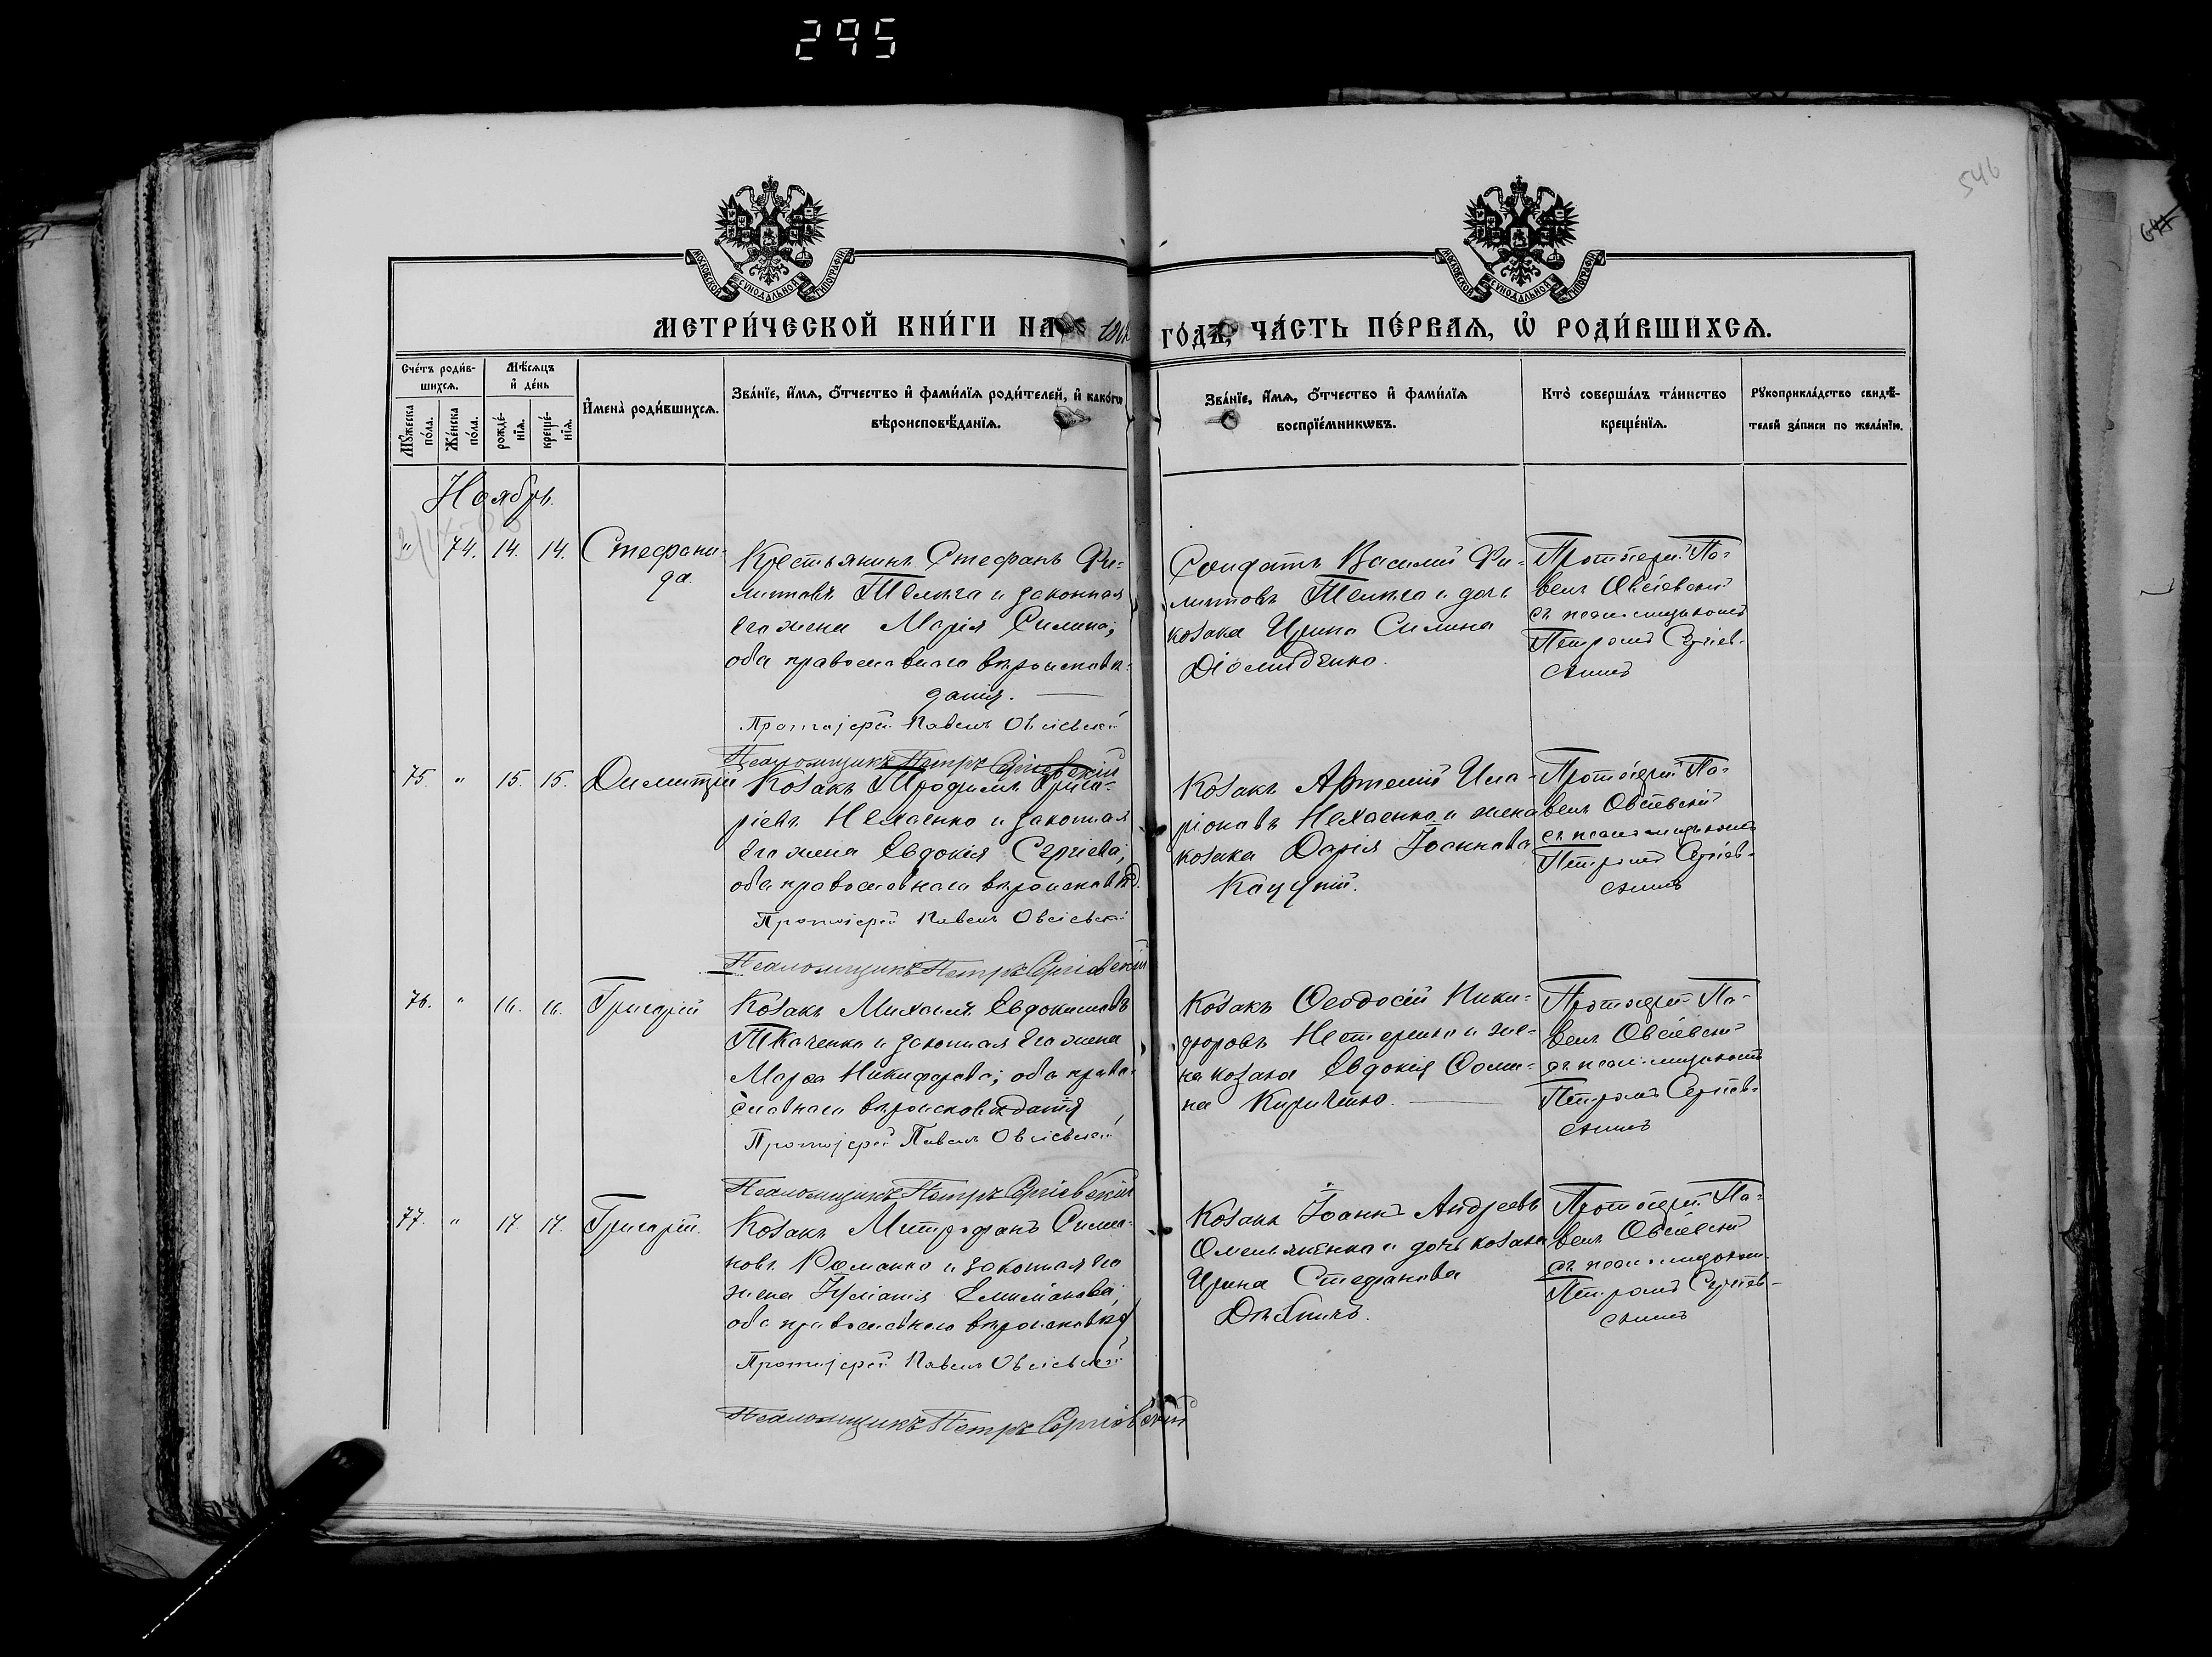 295
546
МОСКОВСКОЙ СУНОДАЛЬНОЙ ТИПОГРАФІИ
МОСКОВСКОЙ СУНОДАЛЬНОЙ ТИПОГРАФІИ
МЕТРИ́ЧЕСКОЙ КНИ́ГИ НА
ГО́ДЪ, ЧА́СТЬ ПЕ́РВАЯ, Ѡ҆ РОДИ́ВШИХСЯ.
Сче́тъ роди́в-
шихся.
Мѣ́сяцъ
и҆ де́нь
Мꙋ́жеска
по́ла.
Же́нска
по́ла.
рожде́-
нїя.
креще́-
нїя.
И҆мена̀ роди́вшихся.
Зва́нїе, и҆́мя, ѻ҆́тчество и҆ фами́лїя роди́телей, и҆ како́гѡ
вѣроисповѣ́данїя.
Зва́нїе, и҆́мя, ѻ҆́тчество и҆ фами́лїя
воспрїе́мникѡвъ.
Кто̀ соверша́лъ та́инство
креще́нїя.
Рꙋкоприкла́дство свидѣ́-
телей за́писи по жела́нїю.
Ноябрь.
" 74. 14. 14. Стефани-
да.
Крестьянинъ Стефанъ Фи-
липповъ Телига и законная
его жена Марія Силина;
оба православнаго вѣроисповѣ-
данія.
Протоіерей Павелъ Овсіевскій
Псаломщикъ Петръ Сергіевскій
Солдатъ Василій Фи-
липповъ Телига и дочь
козака Ирина Силина
Діомидѣнко.
Протоіерей Па-
велъ Овсіевскій
съ псаломщикомъ
Петромъ Сергіев-
скимъ
75. " 15. 15. Димитрій
Козакъ Трофимъ Григо-
ріевъ Нехаенко и законная
его жена Евдокія Сергіева;
оба православнаго вѣроисповѣд.
Протоіерей Павелъ Овсіевскій
Псаломщикъ Петръ Сергіевскій
Козакъ Артемій Ила-
ріоновъ Нехаенко и жена
козака Дарія Іоаннова
Кацупій.
Протоіерей Па-
велъ Овсіевскій
съ псаломщикомъ
Петромъ Сергіев-
скимъ
76. " 16. 16. Григорій
Козакъ Михаилъ Евдокимовъ
Ткаченко и законная его жена
Марѳа Никифорова; оба право-
славнаго вѣроисповѣданія
Протоіерей Павелъ Овсіевскій
Псаломщикъ Петръ Сергіевскій
Козакъ Ѳеодосій Ники-
форовъ Нестеренко и же-
на козака Евдокія Ѳоми-
на Кириченко.
Протоіерей Па-
велъ Овсіевскій
съ псаломщикомъ
Петромъ Сергіев-
скимъ
77. " 17. 17. Григорій.
Козакъ Митрофанъ Симо-
новъ Романко и законная его
жена Іуліанія Емиліанова;
оба православнаго вѣроисповѣд
Протоіерей Павелъ Овсіевскій
Псаломщикъ Петръ Сергіевскій
Козакъ Іоаннъ Андреевъ
Омельяненко и дочь козака
Ирина Стефанова
Протоіерей Па-
велъ Овсіевскій
съ псаломщикомъ
Петромъ Сергіев-
скимъ